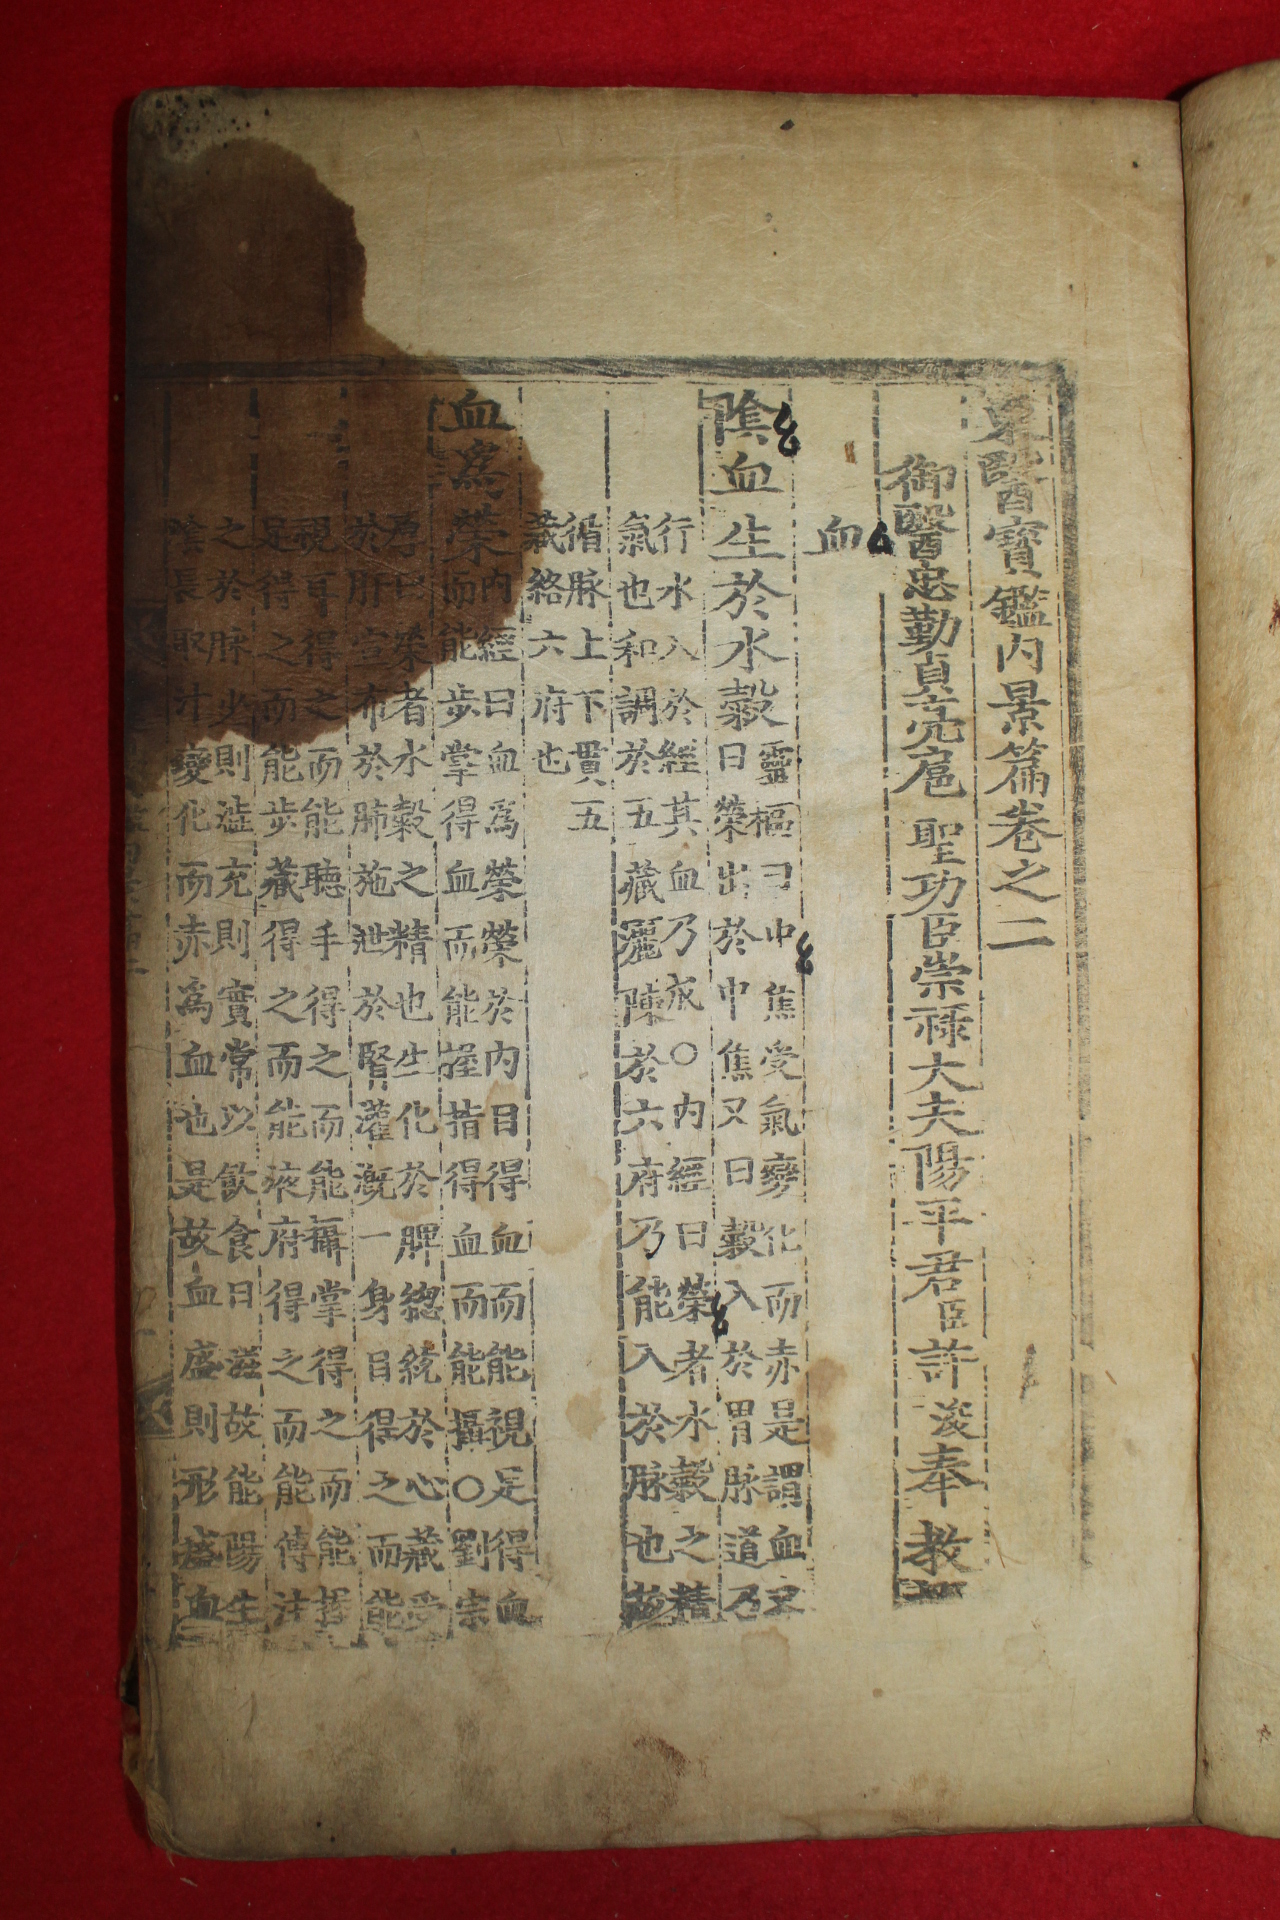 東醫寶鑑内景篇卷之二
御醫忠勤貞亮扈 聖功臣崇祿大夫陽平君臣許浚奉 教
血
陰血生於水穀
靈樞曰中焦受氣變化而赤是謂血又
曰榮出於中焦又曰穀入於胃脉道乃
行水入於經其血乃成○内經曰榮者水穀之精
氣也和調於五藏灑陳於六府乃能入於脉也故
循脉上下貫五
藏絡六府也
血爲榮
内經曰血爲榮榮於内目得血而能視足得血
而能步掌得血而能握指得血而能攝○劉宗
厚曰榮者水穀之精也生化於脾總統於心藏受
於肝宣布於肺施泄於腎灌漑一身目得之而能
視耳得之而能聽手得之而能攝掌得之而能握
足得之而能步藏得之而能液府得之而能傳注
之於脉少則澁充則實常以飮食日滋故能陽生
陰長取汁變化而赤爲血也是故血盛則形盛血